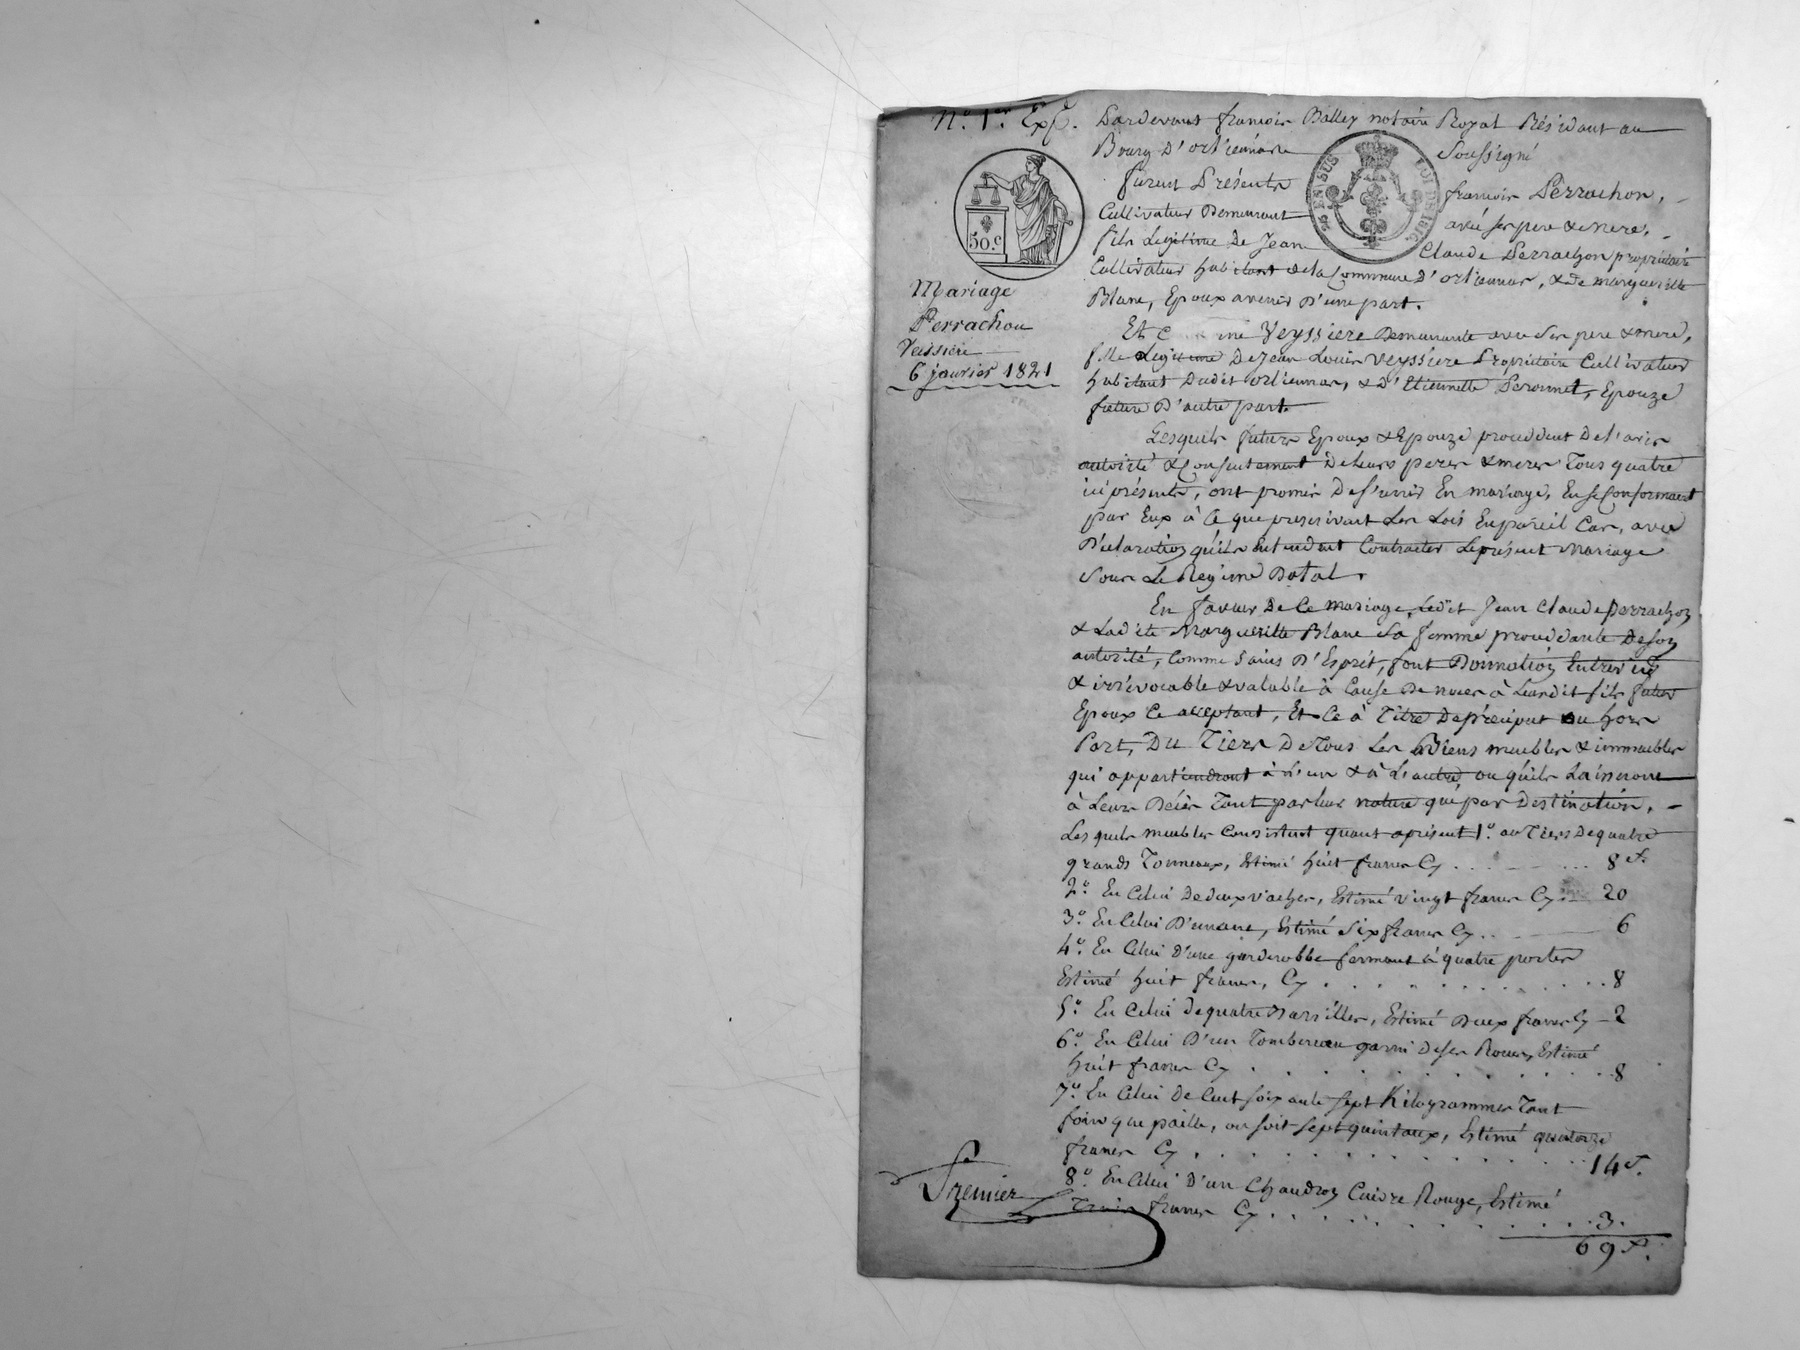 N.º 1.er Exp.
Pardevant françois Balley notaire Royal Résidant au
Bourg D'orliennas Soussigné
furent Présents françois Perrachon,
Cultivateur Demeurant avec ses pere & mere,
fils Legitime de Jean Claude Perrachon propriétaire
Cultivateur habitant de la Commune D'orliennas, & de margueritte
Blanc, Epoux avenir D'une part.
50.c
Mariage
Perrachon
Veissiere
6 janvier 1821
Et Veyssiere Demeurante avec ses pere & mere,
fille Legitime de Jean Louis Veyssiere Propriétaire Cultivateur
habitant Dudit orliennas, & D'Etiennette Peronnet, Epouze
future D'autre part.
Lesquels futurs Epoux & Epouze procedent de l'avis
autorité & Consentement de leurs peres & meres Tous quatre
ici présents, ont promis de s'unir En mariage, En se Conformant
par Eux à Ce que prescrivent Les Lois En pareil Cas, avec
Déclaration qu'ils Entendent Contracter Le présent Mariage
sous Le Régime Dotal.
En faveur De Ce mariage, Ledit Jean Claude perrachon
& Ladite Margueritte Blanc sa femme procédante De son
autorité, Comme sains D'Esprit, font Donnation Entrevifs
& irrévocable & valable à Cause De noces à Leurdit fils futur
Epoux Ce acceptant, Et Ce à Titre De préciput ou hors
Part, Du Tiers De Tous Les Biens meubles & immeubles
qui appartiendront à L'un & à L'autre ou qu'ils Laisseront
à Leurs Décès Tant par leur nature que par Destination,
Lesquels meubles Consistent quant aprésent 1.º au Tiers De quatre
grands Tonneaux, Estimé huit francs Cy 8 f.
2.º En Celui De deux vaches, Estimé vingt francs Cy 20
3.º En Celui D'un ane, Estimé Six francs Cy 6
4.º En Celui D'une garderobbe fermant à quatre portes
Estimé huit francs, Cy 8
5.º En Celui de quatre Barrilles, Estimé Deux francs Cy 2
6.º En Celui D'un Tombereau garni De ses Roues, Estimé
huit francs Cy 8
7.º En Celui De Cent soixante sept Kilogrammes Tant
foin que paille, ou soit sept quintaux, Estimé quatorze
francs Cy 14 f.
8.º En Celui D'un Chaudron Cuivre Rouge, Estimé
Trois francs Cy 3.
69 f.
Premier